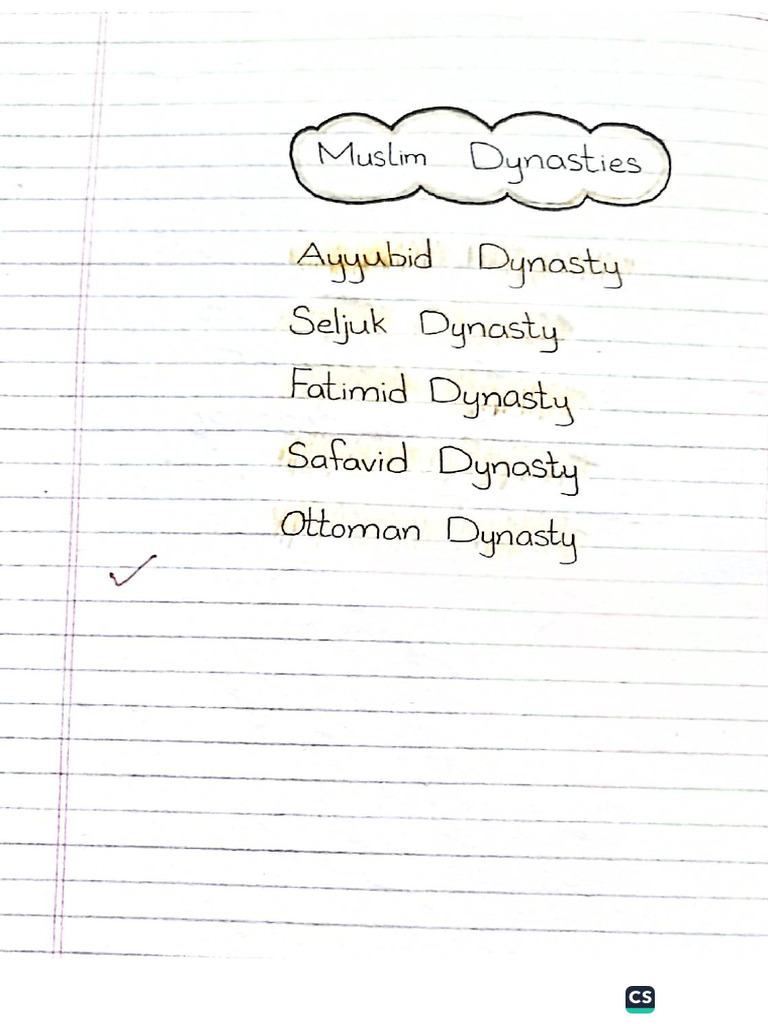 Muslim Dynasties
Ayyubid Dynasty
Seljuk Dynasty
Fatimid Dynasty
Safavid Dynasty
Ottoman Dynasty
CS